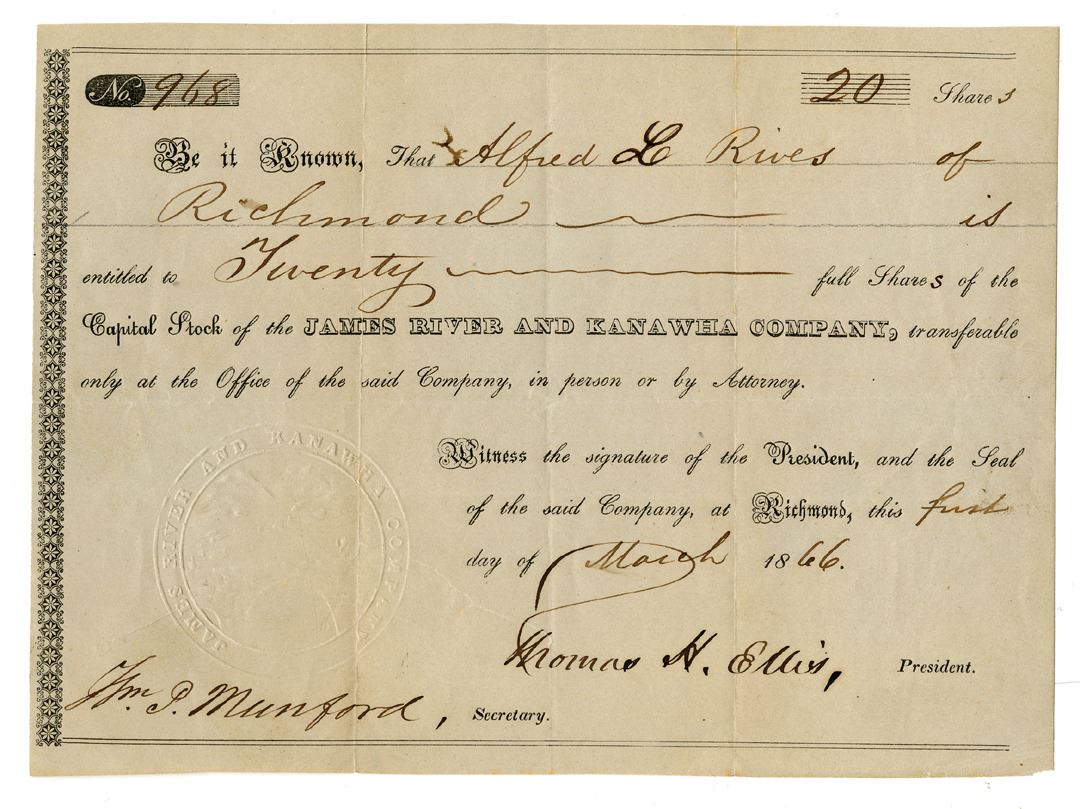 No. 968 20 Shares
Be it Known, That Alfred L Rives of
Richmond is
entitled to Twenty full Shares of the
Capital Stock of the JAMES RIVER AND KANAWHA COMPANY, transferable
only at the Office of the said Company, in person or by Attorney.
Witness the signature of the President, and the Seal
of the said Company, at Richmond, this first
day of March 1866.
JAMES RIVER AND KANAWHA COMPANY
Thomas H. Ellis, President.
Wm. P. Munford, Secretary.